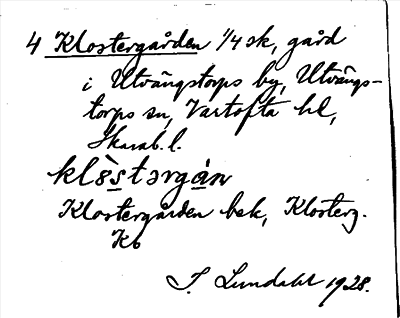 4 Klostergården 1/4 sk, gård
i Utvängstorps by, Utvängs-
torps sn, Vartofta hd,
Skarab. l.
klòstərgàn
Klostergården bsk, Klosterg.
Kb
S. Lundahl 1928.